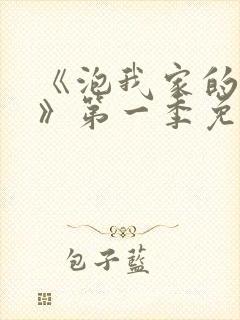 《泡我家的
》第一季免
包子藍